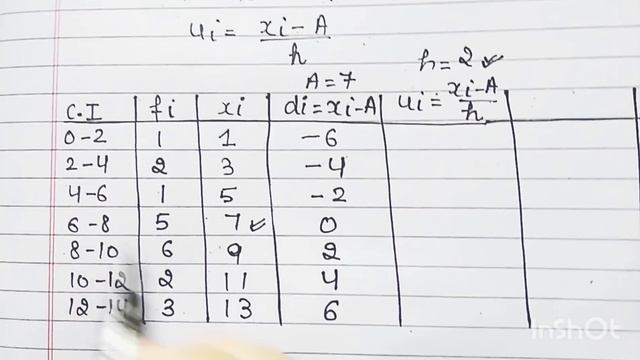 ui = xi-A/h
h=2 ✓
A=7
C.I fi xi di=xi-A ui=xi-A/h
0-2 1 1 -6
2-4 2 3 -4
4-6 1 5 -2
6-8 5 7 ✓ 0
8-10 6 9 2
10-12 2 11 4
12-14 3 13 6
InShOt